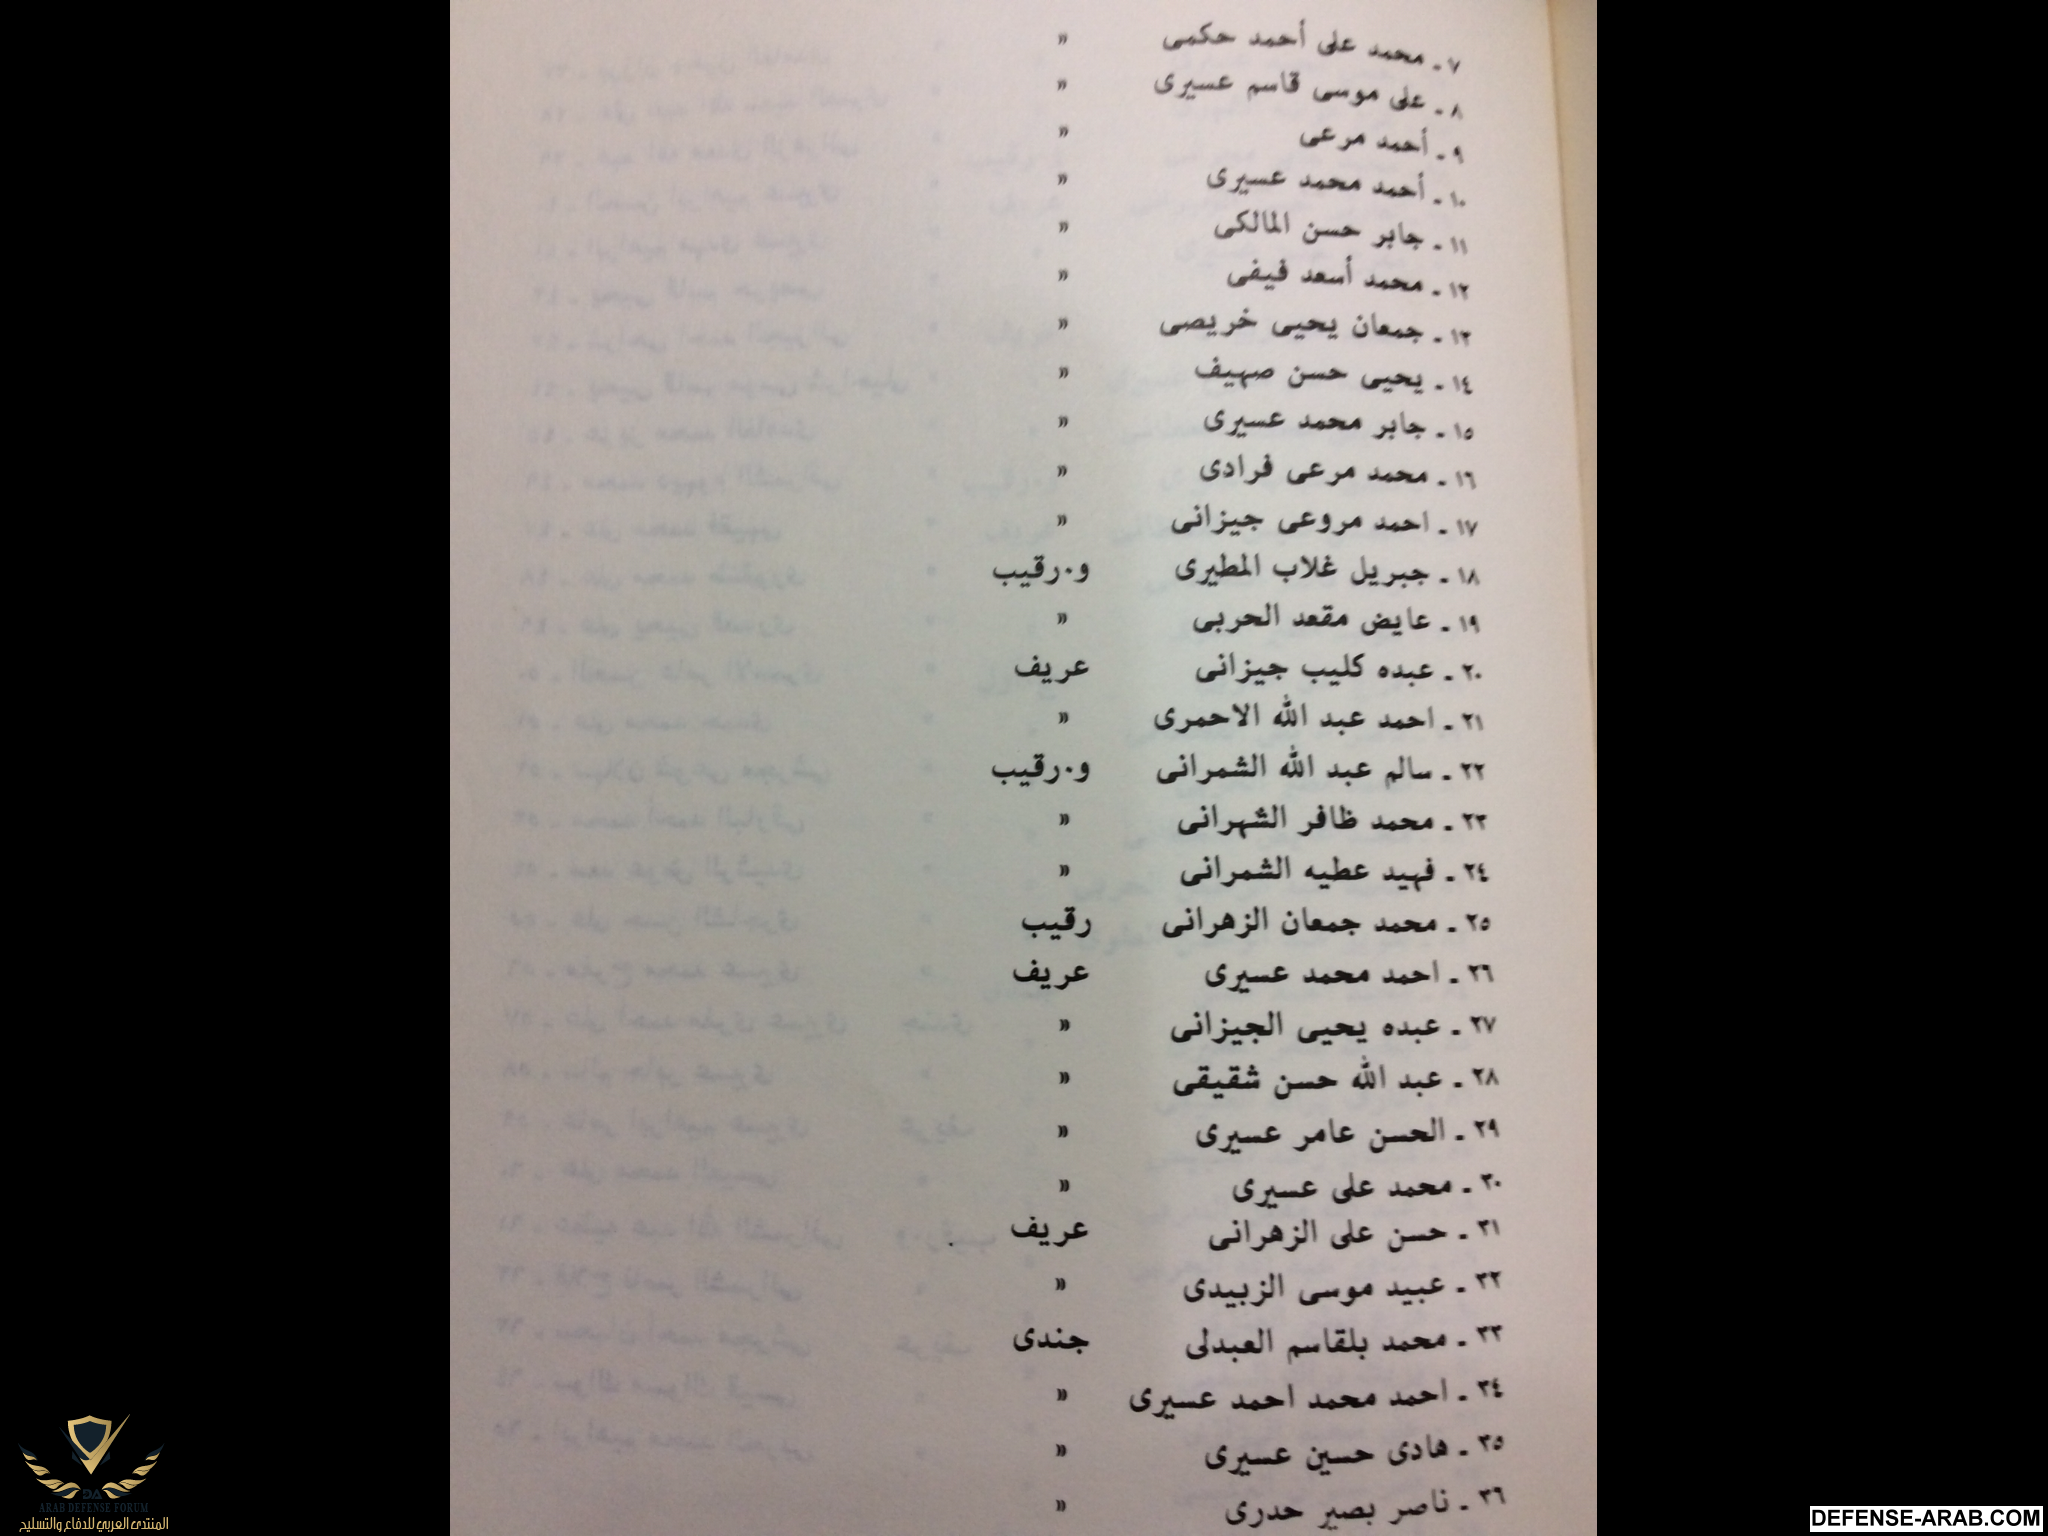 ٧ ـ محمد على أحمد حكمى »
٨ ـ على موسى قاسم عسيرى »
٩ ـ أحمد مرعى »
١٠ ـ أحمد محمد عسيرى »
١١ ـ جابر حسن المالكى »
١٢ ـ محمد أسعد فيفى »
١٣ ـ جمعان يحيى خريصى »
١٤ ـ يحيى حسن صهيف »
١٥ ـ جابر محمد عسيرى »
١٦ ـ محمد مرعى فرادى »
١٧ ـ احمد مروعى جيزانى »
١٨ ـ جبريل غلاب المطيرى و٠رقيب
١٩ ـ عايض مقعد الحربى »
٢٠ ـ عبده كليب جيزانى عريف
٢١ ـ احمد عبد الله الاحمرى »
٢٢ ـ سالم عبد الله الشمرانى و٠رقيب
٢٣ ـ محمد ظافر الشهرانى »
٢٤ ـ فهيد عطيه الشمرانى »
٢٥ ـ محمد جمعان الزهرانى رقيب
٢٦ ـ احمد محمد عسيرى عريف
٢٧ ـ عبده يحيى الجيزانى »
٢٨ ـ عبد الله حسن شقيقى »
٢٩ ـ الحسن عامر عسيرى »
٣٠ ـ محمد على عسيرى »
٣١ ـ حسن على الزهرانى عريف
٣٢ ـ عبيد موسى الزبيدى »
٣٣ ـ محمد بلقاسم العبدلى جندى
٣٤ ـ احمد محمد احمد عسيرى »
٣٥ ـ هادى حسين عسيرى »
٣٦ ـ ناصر بصير حدرى »
DA
ARAB DEFENSE FORUM
المنتدى العربي للدفاع والتسليح
DEFENSE-ARAB.COM